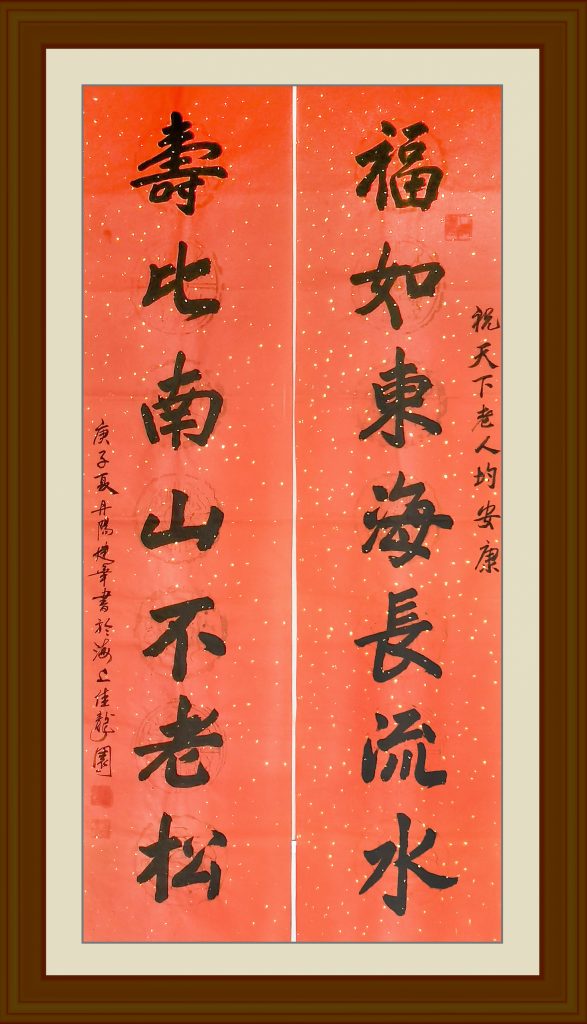 祝天下老人均安康
福如東海長流水
壽比南山不老松
庚子夏丹陽建華書於海上佳龍園